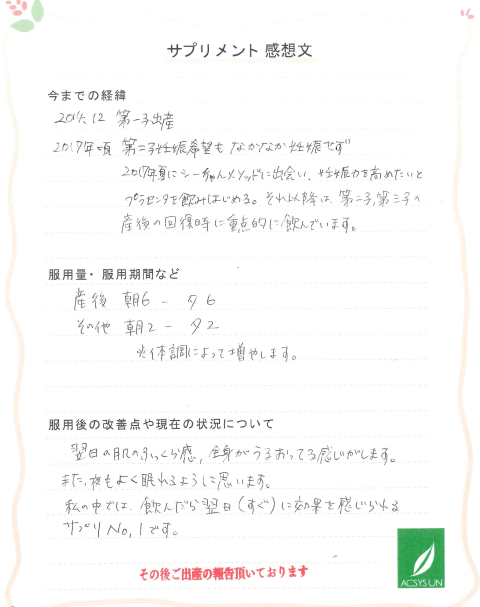 サプリメント 感想文
今までの経緯
2014.12 第一子出産
2017年頃 第二子妊娠希望も なかなか妊娠せず
2017年夏にシーちゃんメソッドに出会い、妊娠力を高めたいと
プラセンタを飲みはじめる。それ以降は、第二子,第三子の
産後の回復時に重点的に飲んでいます。
服用量・服用期間など
産後 朝6 ー 夕6
その他 朝2 ー 夕2
※体調によって増やします。
服用後の改善点や現在の状況について
翌日の肌のふっくら感、全身がうるおってる感じがします。
また、夜もよく眠れるように思います。
私の中では、飲んだら翌日(すぐ)に効果を感じられる
サプリNo,1です。
その後ご出産の報告頂いております
ACSYSUN